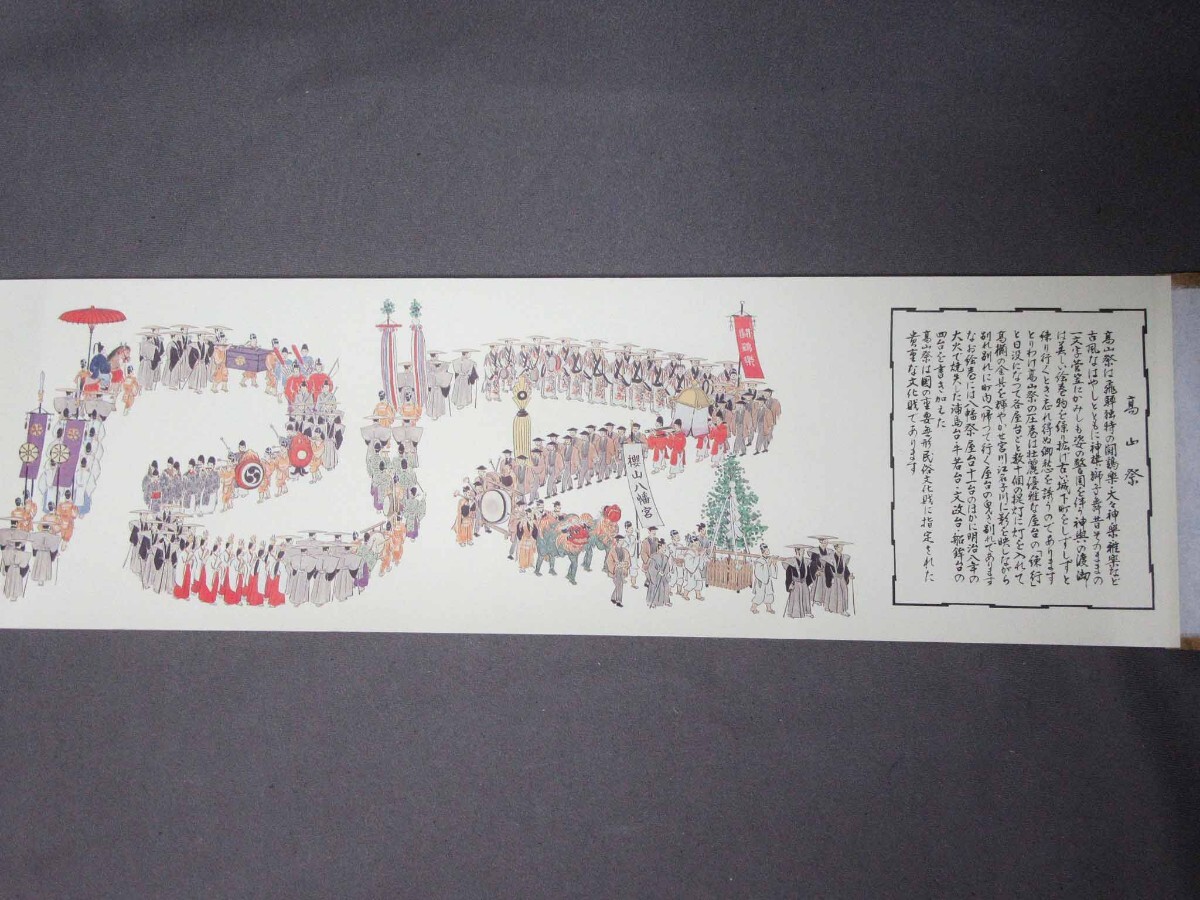 高山祭
高山祭は飛騨独特の闘鶏樂・大々神樂・雅樂など
古風なはやしとともに神樂・獅子舞昔そのままの
一文字菅笠にかみしも姿の警固を伴う神輿の渡御
は美しい絵巻物を繰り拡げ古い城下町をしずしずと
練り行くとき忘れ得ぬ郷愁を誘うのであります
とりわけ高山祭の圧巻は壮麗優雅な屋台の「練行」
と日没になって各屋台ごと数十個の提灯に灯を入れて
高欄の金具を輝やかせ宮川江名子川に影を映しながら
別れ別れに町内へ帰って行く屋台の曳き別れであります
なお絵巻には八幡祭屋台十一台のほかに明治八年の
大火で焼失した浦島台・千若台・文政台・船鉾台の
四台を書き加えた
高山祭は國の重要無形民俗文化財に指定をされた
貴重な文化財であります
闘鶏樂
櫻山八幡宮